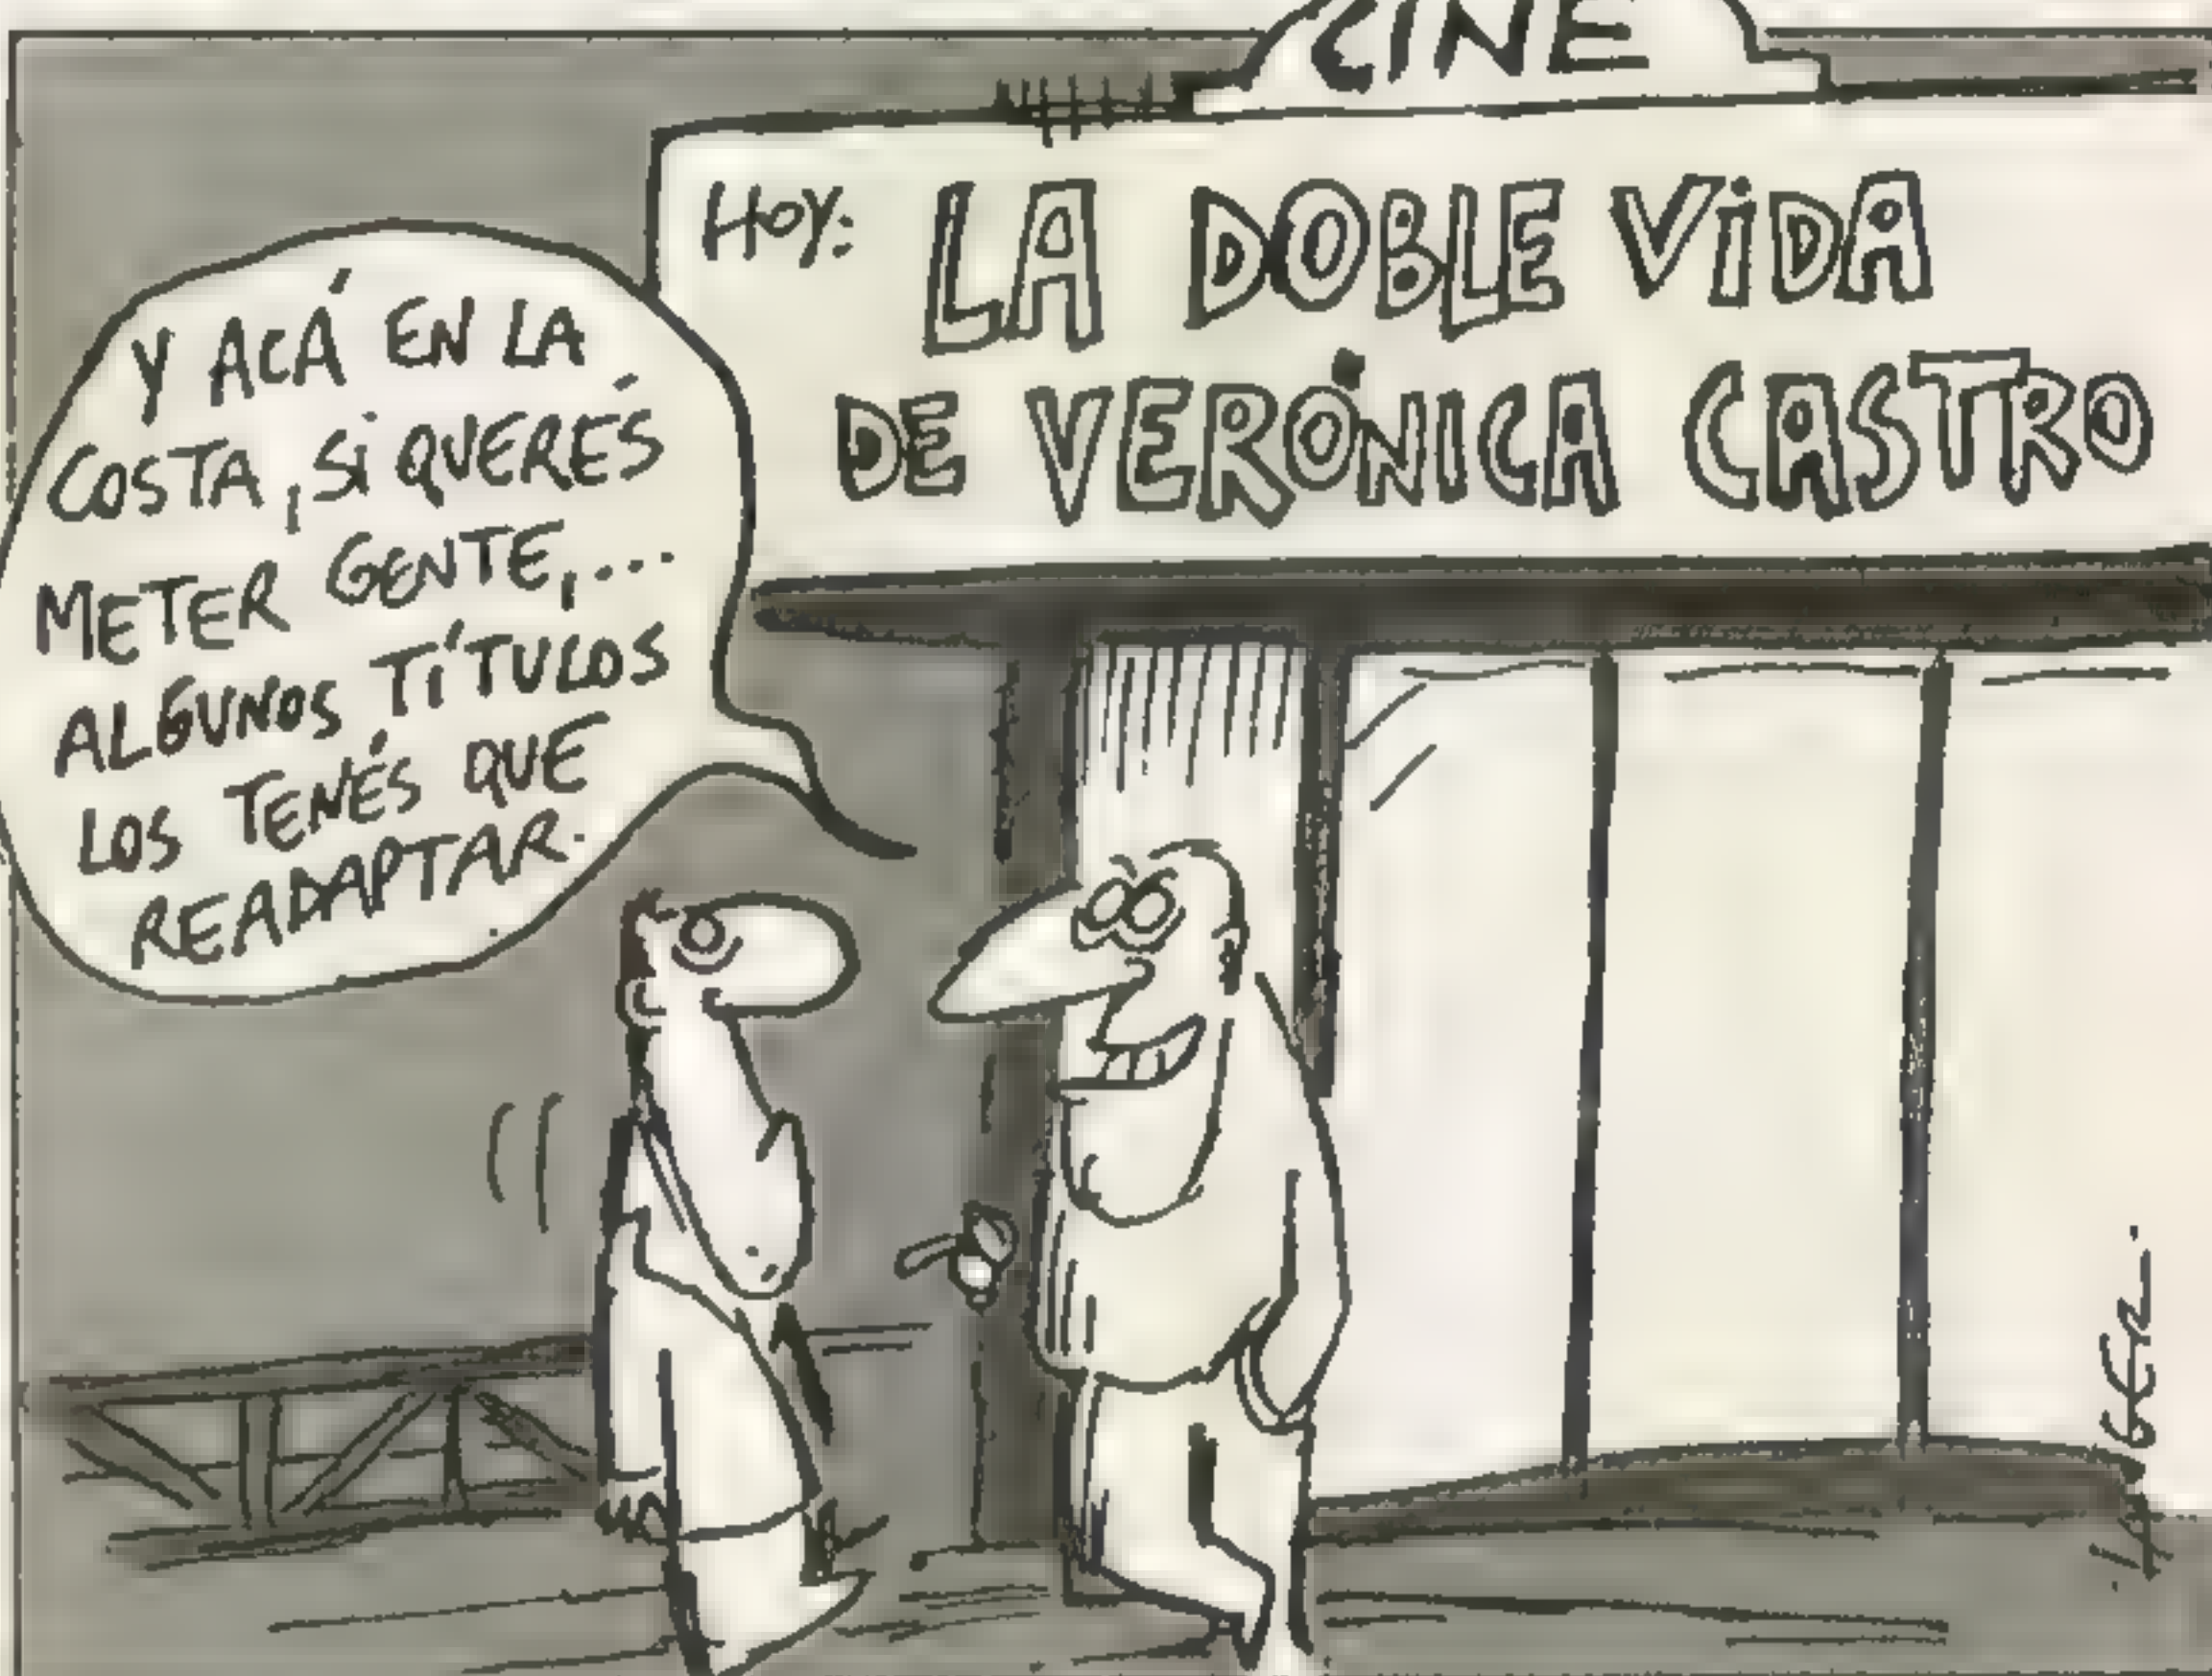 CINE
HOY: LA DOBLE VIDA
DE VERÓNICA CASTRO
Y ACÁ EN LA
COSTA, SI QUERÉS
METER GENTE,...
ALGUNOS TÍTULOS
LOS TENÉS QUE
READAPTAR.